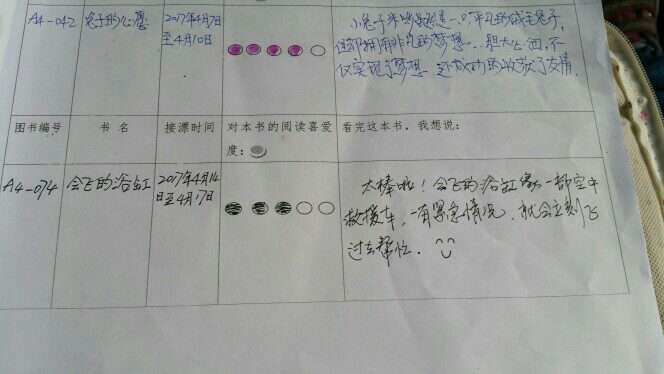 A4-042
兔子的心愿
2017年4月7日
至4月10日
小兔子米
是一只平凡的
兔子,
但却拥有非凡的梦想...胆大心细,不
仅实现了梦想,还成功的收获了友情.
图书编号
书 名
接漂时间
对本书的阅读喜爱
度:
看完这本书,我想说:
A4-074
会飞的浴缸
2017年4月14
日至4月17日
太棒啦!会飞的浴缸像一部空中
救援车,一有紧急情况,就会立刻飞
过去帮忙.